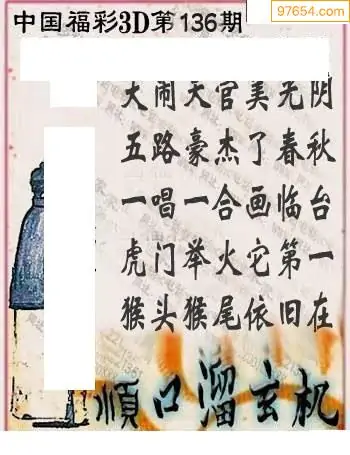 中国福彩3D第136期
97654.com
大闹天宫美光阴
五路豪杰了春秋
一唱一合画临台
虎门举火它第一
猴头猴尾依旧在
顺口溜玄机